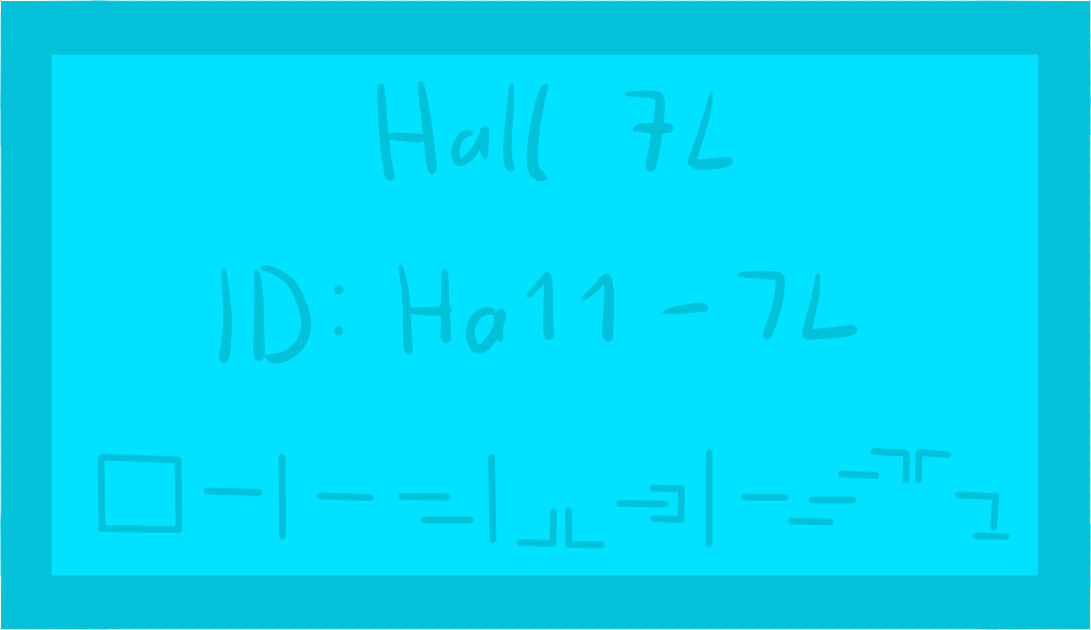 Hall 7L
ID: Ha11-7L